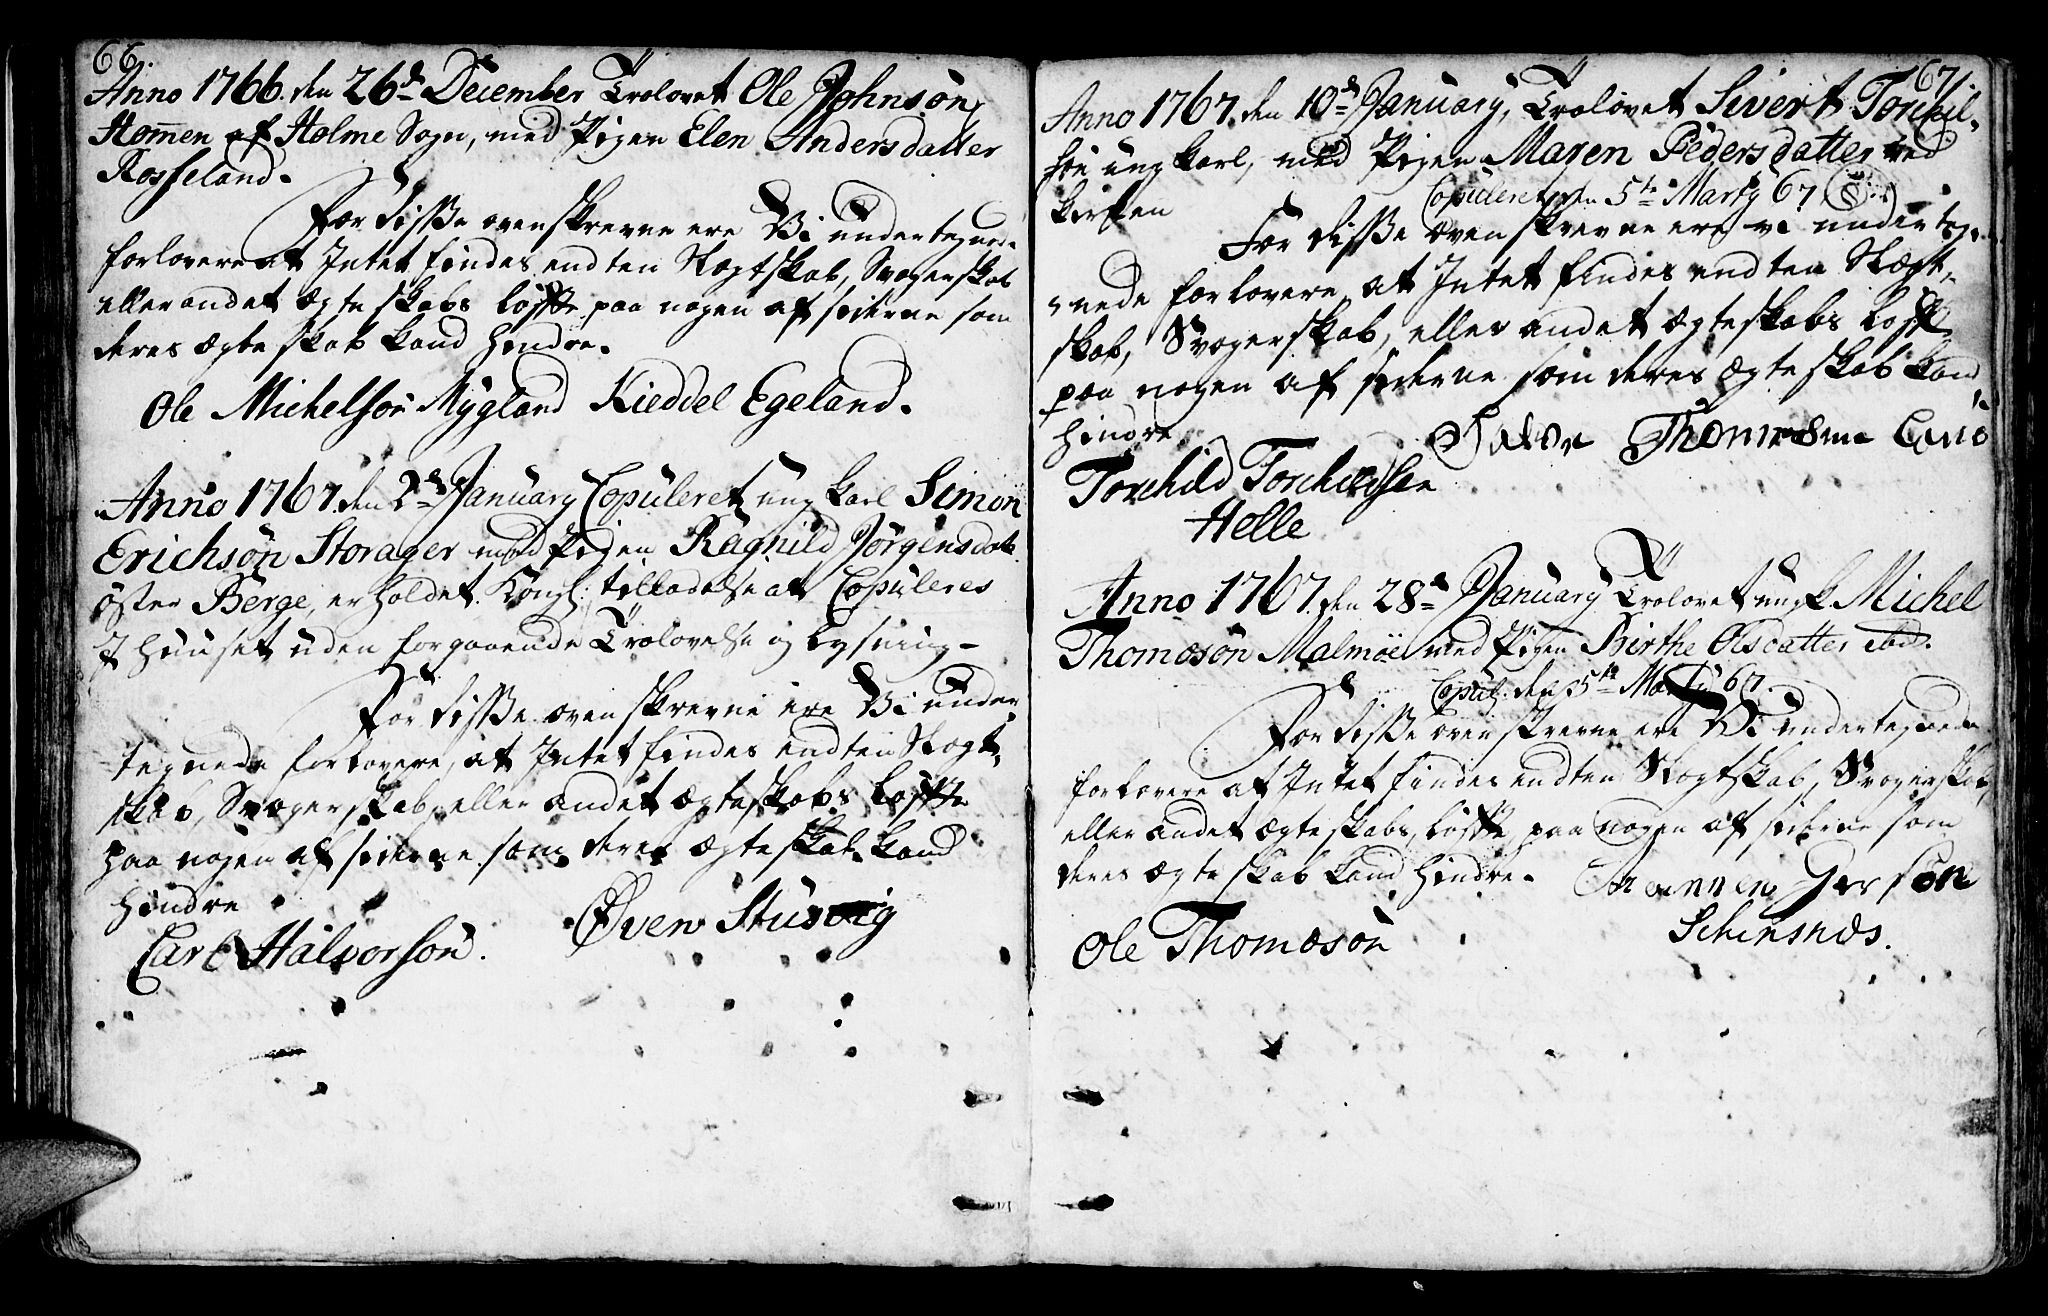 66.
Anno 1766. den 26de December Trolovet Ole Johnsøn
Homen af Holme Sogn, med Pigen Elen Andersdatter
Rosseland.
For disse ovenskrevne ere Vi undertegnede
forlovere at Intet findes endten Slegtskab, Svogerskab
eller andet Ægteskabs løffte paa nogen af siderne som
deres Ægteskab kand hindre.
Ole Michelsøn Mÿgland Kieddel Egeland.
Anno 1767. den 2de January Copuleret ung karl Simon
Erichsøn Storager med Pigen Ragnild Jørgensdatr
øster Berge, erholdet Kongl: tilladelse at Copuleres
I huuset uden forgaaende Trolovelse og lysning-
For disse ovenskrevne ere Vi under
tegnede forlovere, at Intet findes endten Slegt,
skab, Svogerskab, eller andet Ægteskabs løffte
paa nogen af siderne som deres Ægteskab kand
hindre
Carl Halvorsøn. Øven Stusvig
67
Anno 1767. den 10de January, Trolovet Sivert Torchil,
søn ung karl, med Pigen Maren Pedersdatter ved
Kirken
Copuleret den 5te Marty 67
For disse ovenskrevne ere vi underteg,
nede forlovere at Intet findes endten Slegt,
skab, Svogerskab, eller andet Ægteskabs løfte
paa nogen af siderne som deres Ægteskab kand
hindre
Torchild Torchildsen
Helle
Anno 1767. den 28de January Trolovet ung k. Michel
Thomæsøn Malmøe med Pigen Birthe Olsdatter ibid.
Copul: den 5te Marty 67.
For disse ovenskrevne ere Vi undertegnede
forlovere at Intet findes endten Slegtskab, Svogerskab,
eller andet Ægteskabs løffte paa nogen af siderne som
deres Ægteskab kand hindre.
Ole Thomæsøn